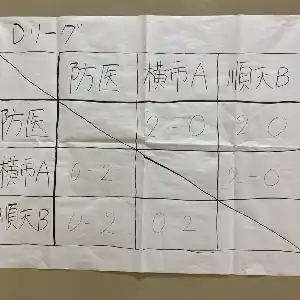 Dリーグ
防医 横市A 順天B
防医 2-0 2 0
横市A 0-2 2-0
順天B 0-2 0 2